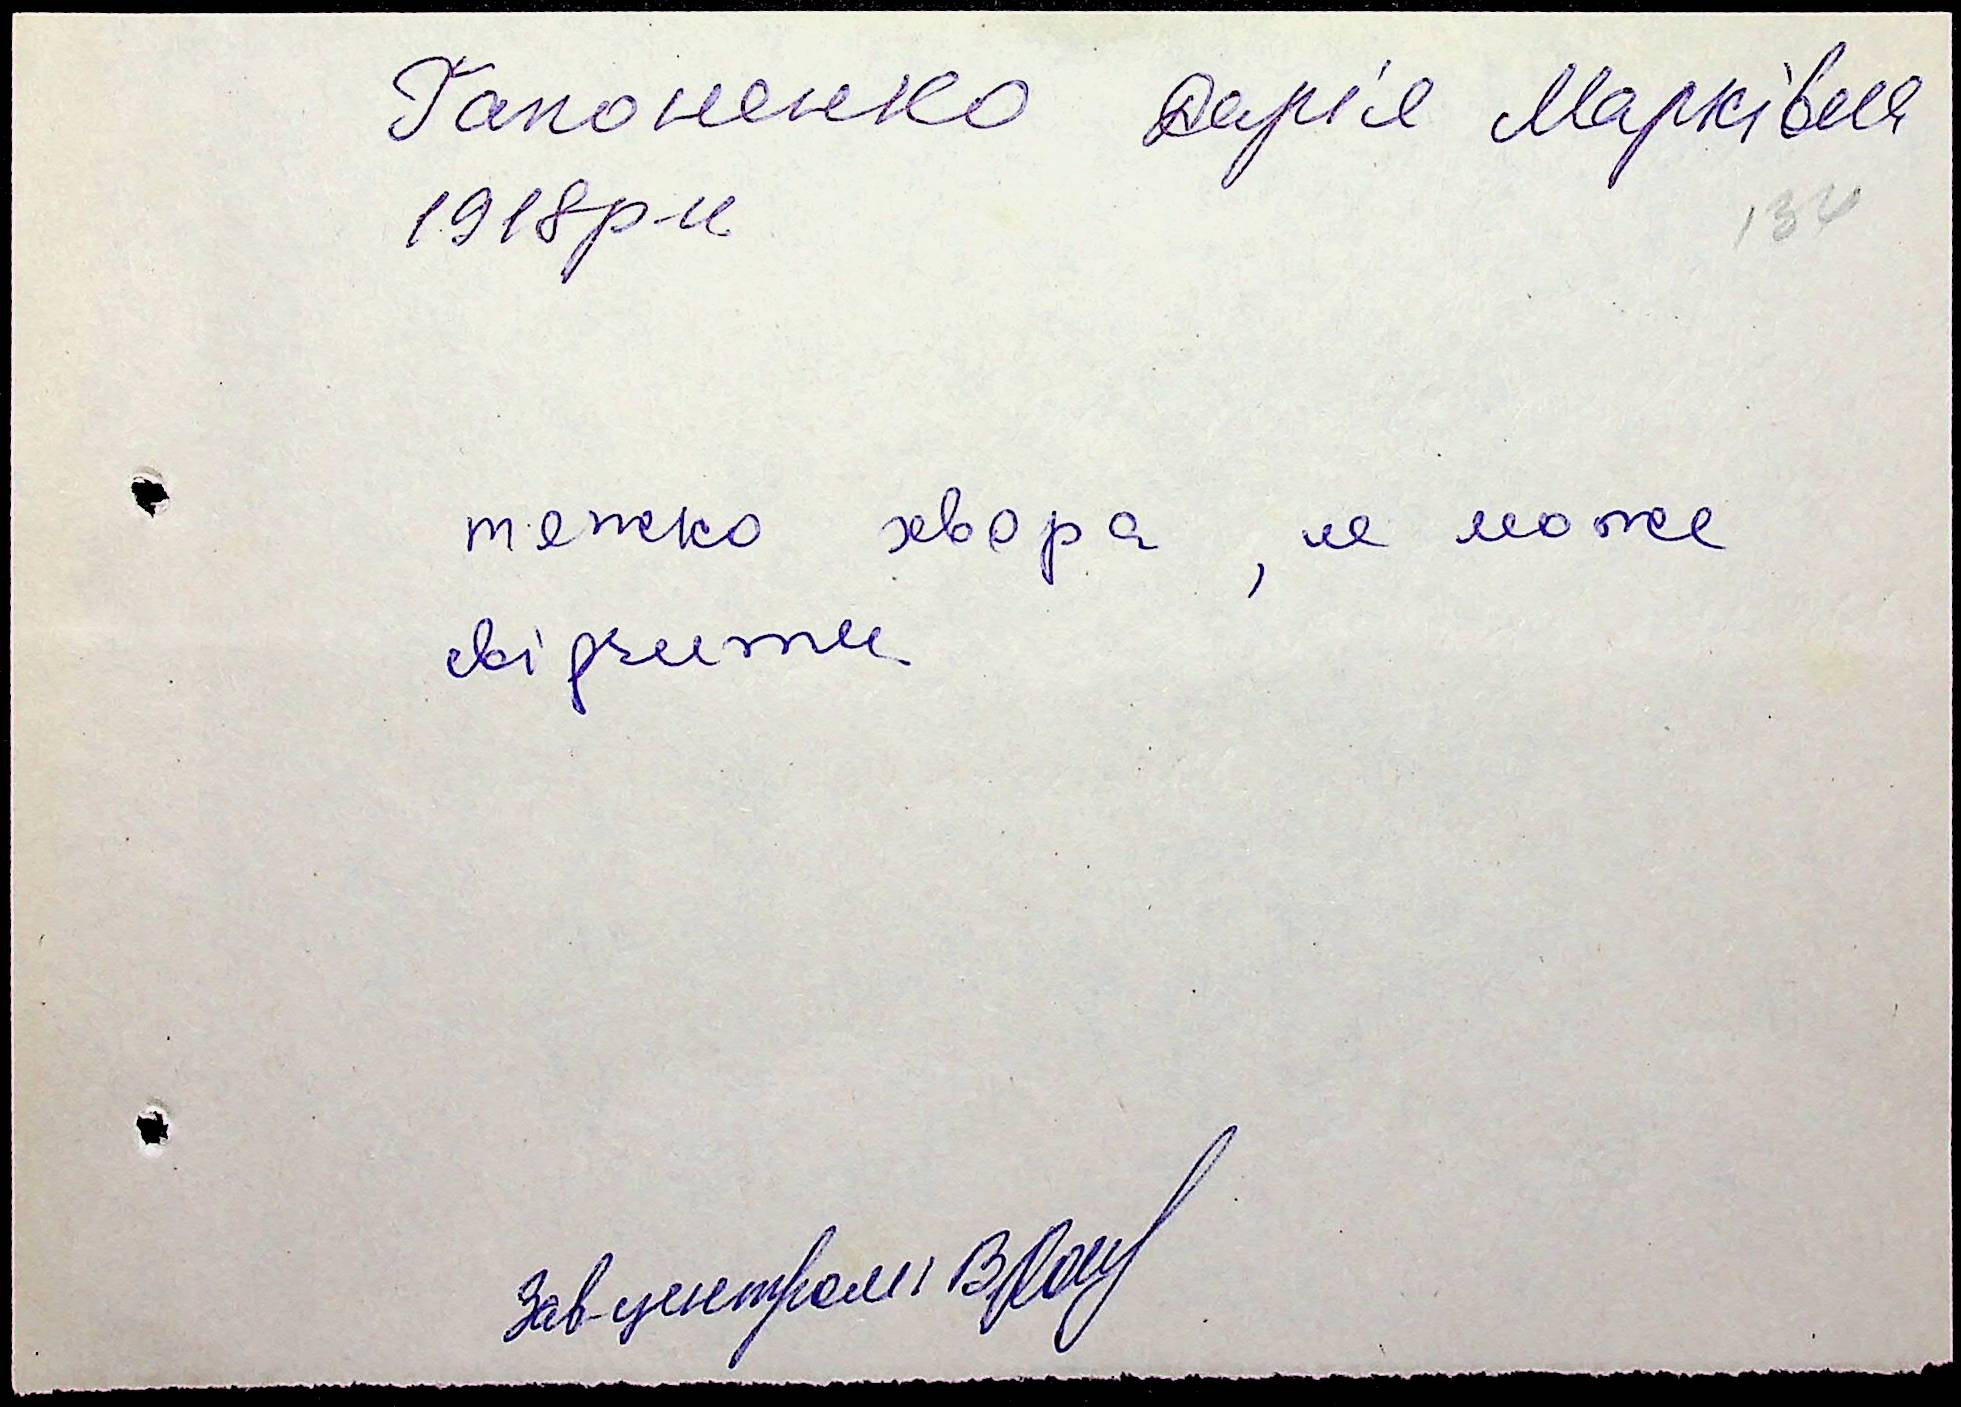 Гапоненко Дарія Марківна
1918 р-н
134
тяжко хвора, не може
свідчити
Зав-центром: